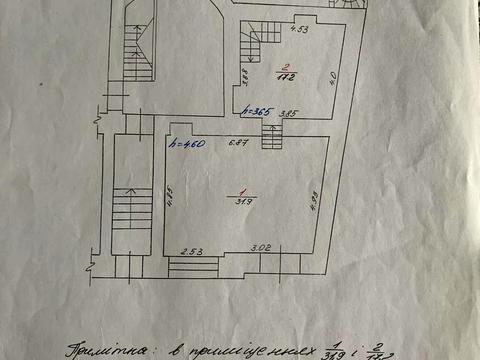 4.53
2
17.2
3.88
4.0
h=3.65
3.85
h=4.60
6.87
1
31.9
4.85
4.95
2.53
3.02
Примітка: в приміщеннях 1/31,9 і 2/17.2